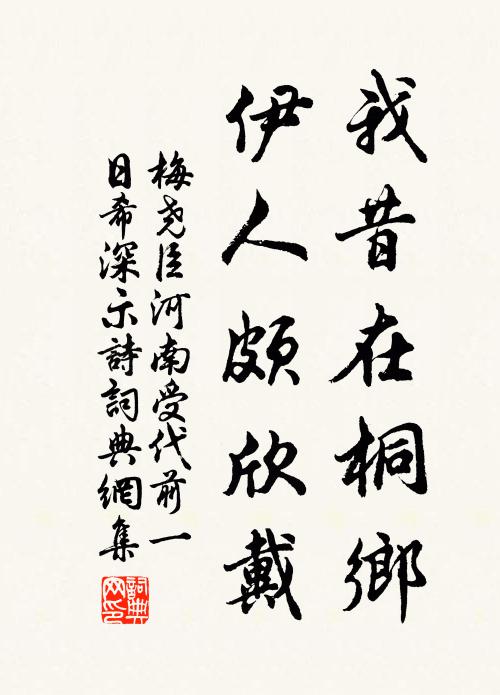 我昔在桐鄉
伊人頗欣戴
梅堯臣河南受代前一
日希深示詩詞典網集
詞典
網印